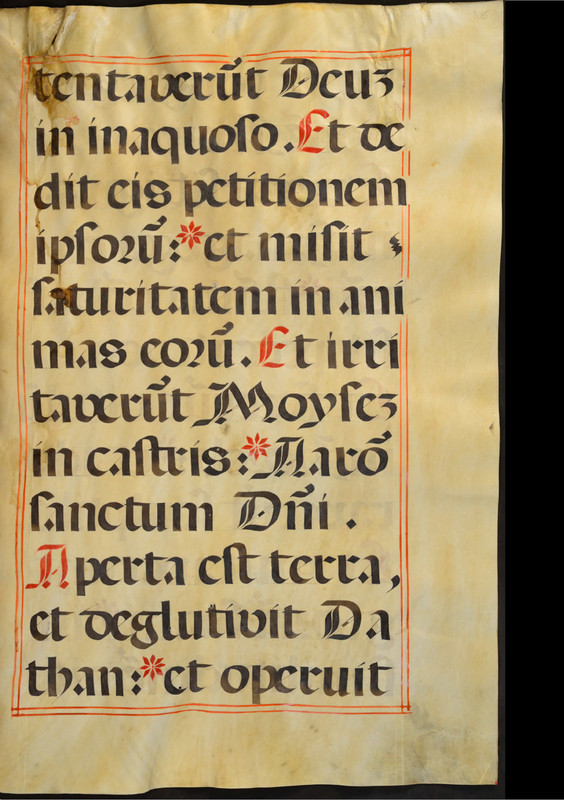 tentaverũt Deuz
in inaquoſo. Et de
dit eis petitionem
ipſoꝛũ: * et miſit
ſaturitatem in ani
mas eoꝛũ. Et irri
taverũt Moyſez
in caſtris: * Aarõ
ſanctum Dñi.
Aperta eſt terra,
et deglutivit Da
than: * et operuit